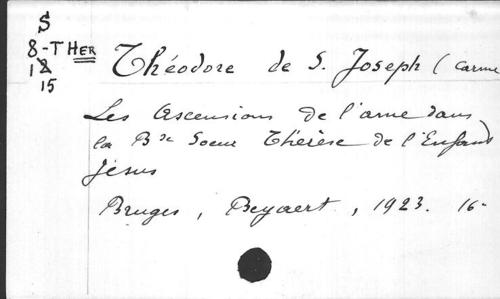 S
8-THER
12
15
Théodore de S. Joseph (carme)
Les Ascensions de l'ame dans
la Bse Soeur Thérèse de l'Enfant
Jésus
Bruges, Beyaert, 1923. 16-